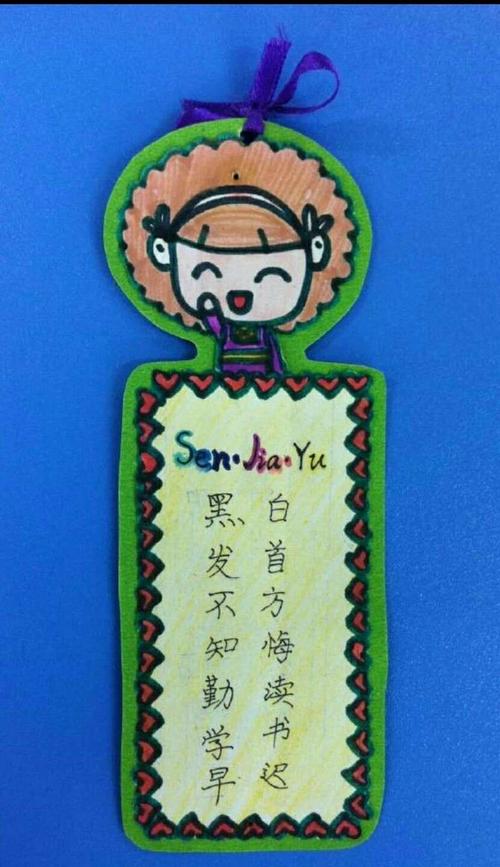 Sen·Jia·Yu
黑发不知勤学早
白首方悔读书迟